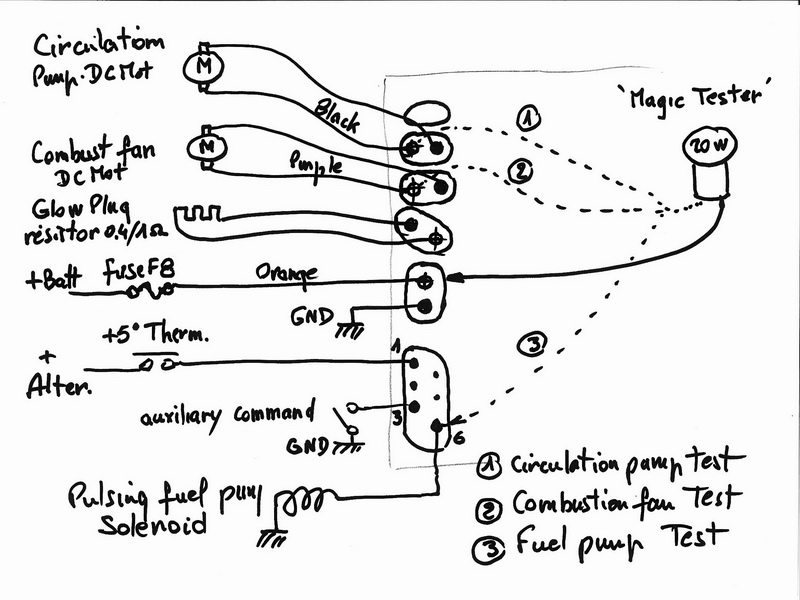 Circulation
Pump. DC Mot
M
Black
Combust fan
DC Mot
M
Purple
Glow Plug
resistor 0.4/1Ω
+Batt
fuse F8
Orange
GND
+5° Therm.
+
Alter.
1
auxiliary command
3
GND
6
Pulsing fuel pump
Solenoid
'Magic Tester'
20W
1
2
3
1 Circulation pump Test
2 Combustion fan Test
3 Fuel pump Test